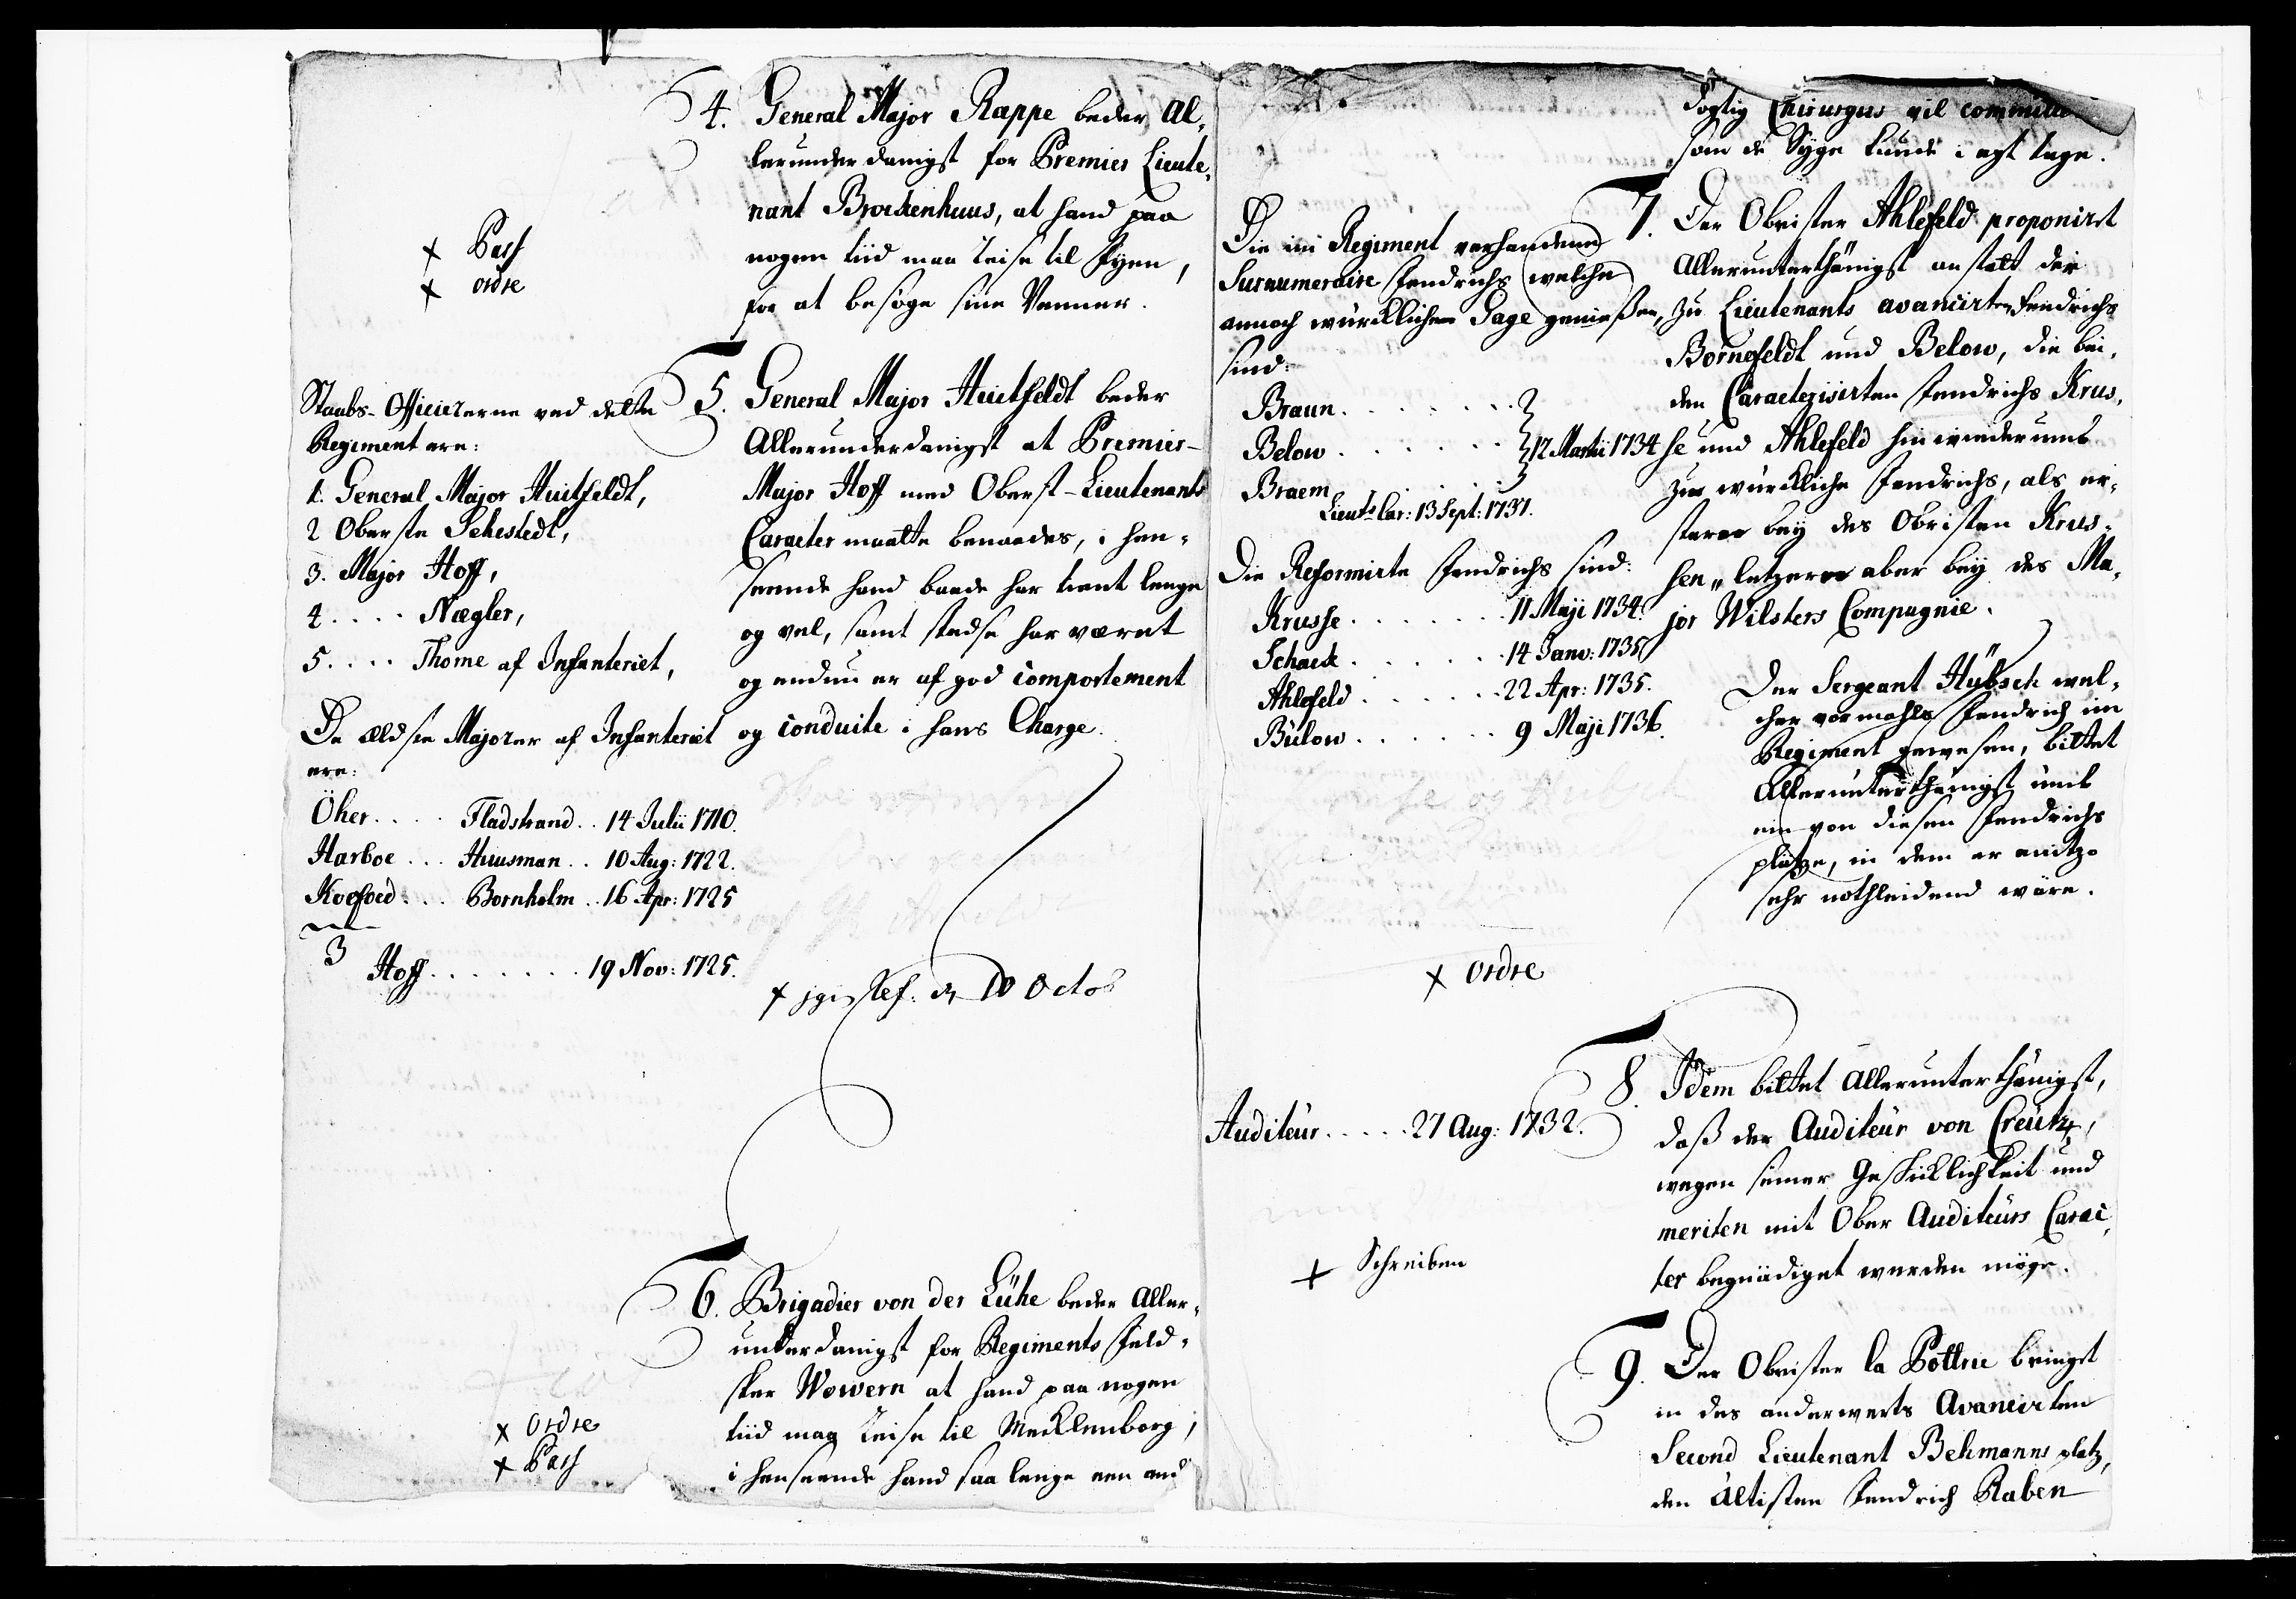 4. General Major Rappe beder Al-
lerunderdanigst for Premier Lieute-
nant Brockenhuus, at hand paa
nogen tiid maa reise til Fyen,
for at besöge sine Venner.
× Pass
× ordre
5. General Major Huitfeldt beder
Allerunderdanigst at Premier-
Major Hoff med Oberst-Lieutenants
Caracter maatte benaades, i hen-
seende hand baade har tient lenge
og vel, samt stedse har været
og endnu er af god comportement
og conduite i hans Charge.
Staabs-Officiererne ved dette
Regiment ere:
1. General Major Huitfeldt,
2 Oberste Sehestedt,
3. Major Hoff,
4 .... Nægler,
5 .... Thome af Infanteriet,
De eldste Majorer af Infanteriet
ere:
Öher.... Fladstrand.. 14 Julii 1710.
Harboe... Huusman.. 10 Aug: 1722.
Koefoed... Bornholm.. 16 Apr: 1725
3
Hoff....... 19 Nov: 1725.
10 Octob
6. Brigadier von der Lühe beder Aller-
underdanigst for Regiments Feld-
sker Wowern at hand paa nogen
tiid maa reise til Mecklenborg,
i henseende hand saa lenge een and
× Ordre
× Pass
dygtig Chirurgus vil committe
som de Syge kunde i agt tage.
7. Der Obrister Ahlefeld proponirt
Allerunterthänigst anstatt der
zu Lieutenants avancirten Fendrichs
Bornefeldt und Below, die bei-
den Caracterisirten Fendrichs Krus-
se und Ahlefeld hinwiederumb
zu würckliche Fendrichs, als er-
sterer bey des Obristen Krus-
sen, letzerer aber bey des Ma-
jor Wilsters Compagnie.
Die im Regiment verhandene
Surnumeraire Fendrichs welche
annoch würckliche Gage genießen,
sind:
Braun.......
Below....... 12 Martii 1734
Braem.......
Lieut: Car: 13 Sept: 1737.
Die Reformirte Fendrichs sind:
Krusse....... 11 Maji 1734.
Schack....... 14 Janv: 1735
Ahlefeld...... 22 Apr: 1735.
Bülow....... 9 Maji 1736.
Der Sergeant Hübsch wel-
cher vormahls Fendrich im
Regiment gewesen, bittet
Allerunterthänigst umb
ein von diesen Fendrichs
plätze, in dem er anitzo
sehr nothleidend wäre.
× ordre
8. Idem bittet Allerunterthänigst,
daß der Auditeur von Creutz,
wegen seiner Geschicklichkeit und
meriten mit Ober Auditeurs Carac-
ter begnädiget werden möge.
Auditeur..... 27 Aug: 1732.
× Schreiben
9. Der Obrister la Pottrie bringet
in des anderwerts Avancirten
Second Lieutenant Behmanns platz,
den ältisten Fendrich Raben